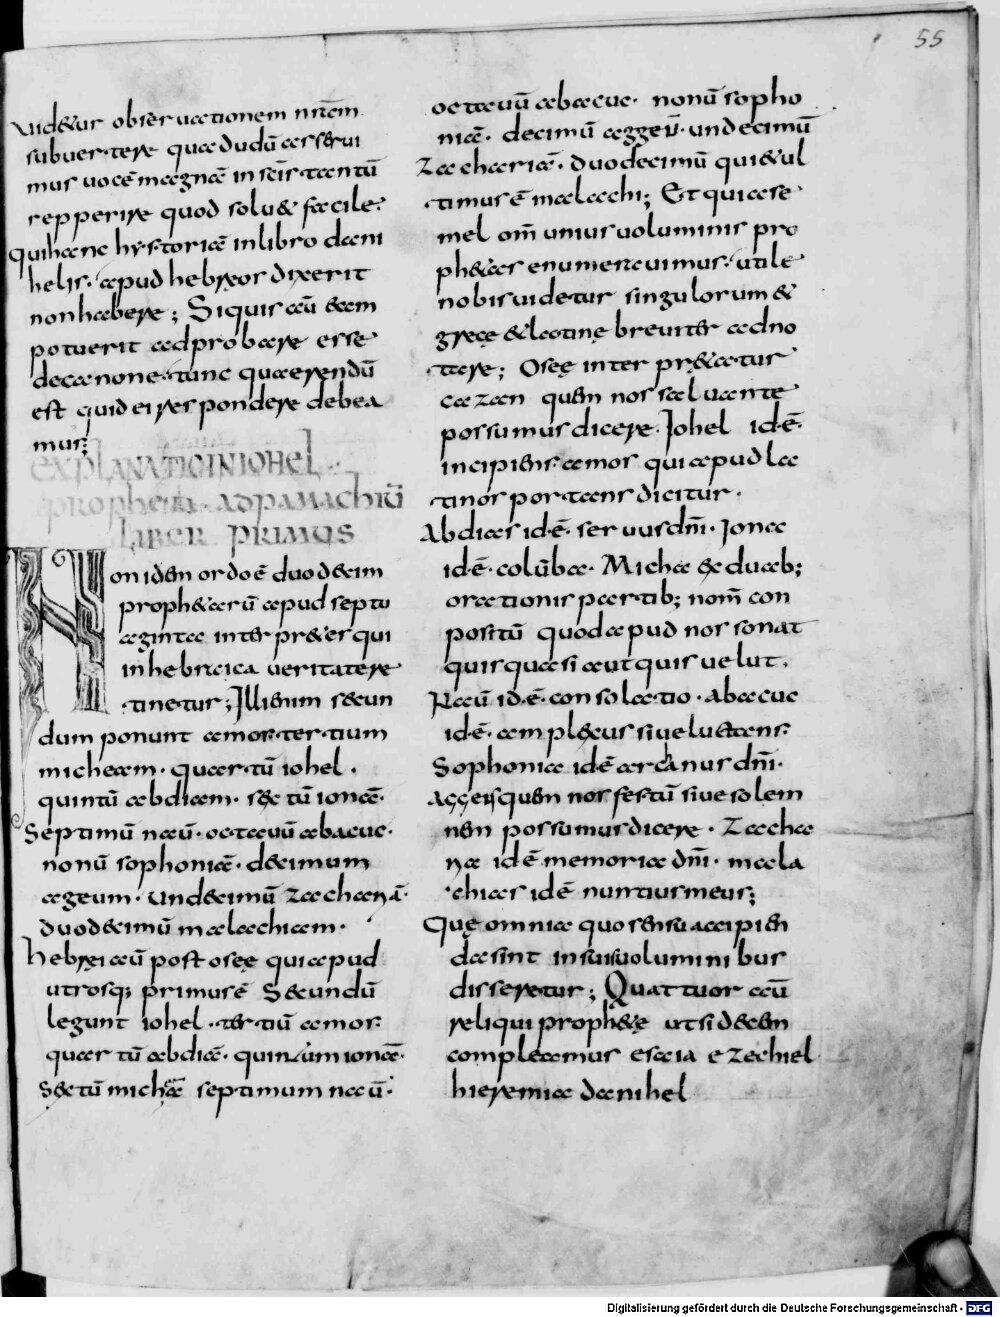 55
uidetur obseruationem nr̄em
subuertere quae dudū asserui
mus uocē magnā in sc̄is tantū
repperire quod soluet facile
qui hanc hystoriā in libro dani
helis. apud hebreos dixerit
non habere; Siquis aū eam
potuerit adprobare esse
de canone. tunc querendū
est quid ei respondere debea
mus;
explANATIO IN IOHel
prophetā. ADPAMAchiū
LIBER PRIMUS
Non idem ordo ē duodecim
prophetarū apud septu
aginta interpretes qui
in hebraica ueritate re
tinetur; Illi enim secun
dum ponunt amos. tertium
micheam. quartū iohel.
quintū abdiam. sextū ionā.
Septimū naū. octauū abacuc.
nonū sophoniā. decimum
ageum. undecimū zachariā.
duodecimū malachiam.
hebrei aū post osee qui apud
utrosq; primus ē Secundū
legunt iohel. tertiū amos.
quartū abdiā. quintum ionā.
Sextū michā septimum naū.
octauū abacuc. nonū sopho
niā. decimū aggeū. undecimū
Zachariā. duodecimū qui et ul
timus ē malachi; Et quia se
mel om̄ unius uoluminis pro
phetas enumerauimus. utile
nobis uidetur singulorum et
grece et latine breuiter adno
tare; Osee interpretatur
cazan quem nos saluante
possumus dicere. Johel id. ē.
incipiens. amos qui apud la
tinos portans dicitur.
Abdias id. ē. seruus dn̄i. Jona
id ē. colūba. Micha ex duab;
orationis partib; nom̄ con
positū quod apud nos sonat
quis quasi aut quis uelut.
Naū id. ē. consolatio. abacuc
id. ē. amplexus siue luctans.
Sophonia id ē arcanus dn̄i.
Aggeus quem nos festū siue solem
nem possumus dicere. Zacha
ria id ē memoria dn̄i. mala
chias id ē nuntius meus;
Que omnia quo sensu accipien
da sint in suis uoluminibus
disseretur; Quattuor aū
reliqui prophete ut si decem
compleamus esaia ezechiel
hieremia danihel
Digitalisierung gefördert durch die Deutsche Forschungsgemeinschaft - DFG